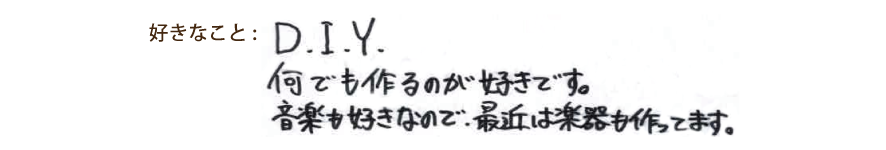 好きなこと: D.I.Y.
何でも作るのが好きです。
音楽も好きなので、最近は楽器も作ってます。